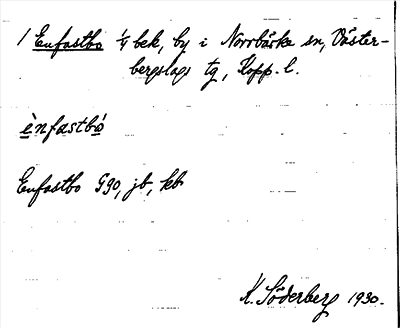 1 Enfastbo 1/4 bek, by i Norrbärke sn, Väster-
bergslags tg, Kopp. l.
ènfastbò
Enfastbo G90, jb, kb
K. Söderberg 1930.